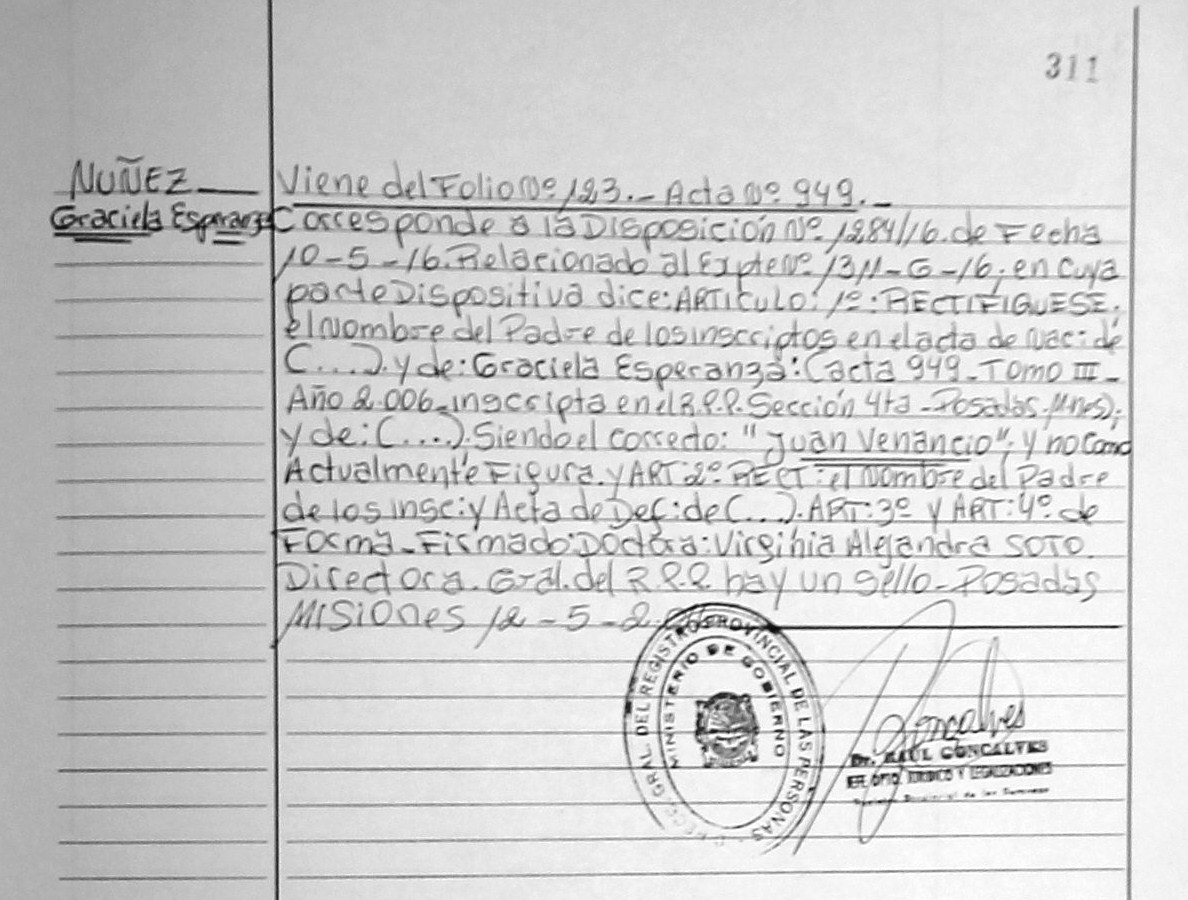 311
NUÑEZ
Graciela Esperanza
Viene del Folio Nº 123.- Acta Nº 949.-
Corresponde a la Disposición Nº 1284/16. de Fecha
10-5-16. Relacionado al Expte Nº 1311-G-16; en cuya
parte Dispositiva dice: ARTICULO: 1º: RECTIFIQUESE;
el Nombre del Padre de los inscriptos en el acta de Nac: de
(....). y de: Graciela Esperanza: (acta 949_Tomo III_
Año 2.006_inscripta en el R.P.P. Sección 4ta_Posadas. Mnes);
y de: (....). Siendo el correcto: "Juan Venancio"; y no como
Actualmente Figura. y ART: 2º: RECT: el Nombre del Padre
de los insc: y Acta de Def: de (...). ART: 3º y ART: 4º de
Forma_Firmado: Doctora: Virginia Alejandra SOTO.
Directora. Gral. del R.P.P. hay un sello_Posadas
MISIONES 12-5-2.
GRAL. DEL REGISTRO PROVINCIAL DE LAS PERSONAS
MINISTERIO DE GOBIERNO
Goncalves
Dr. RAUL GONCALVES
JEFE DPTO. JURIDICO Y LEGALIZACIONES
Provincial de las Personas